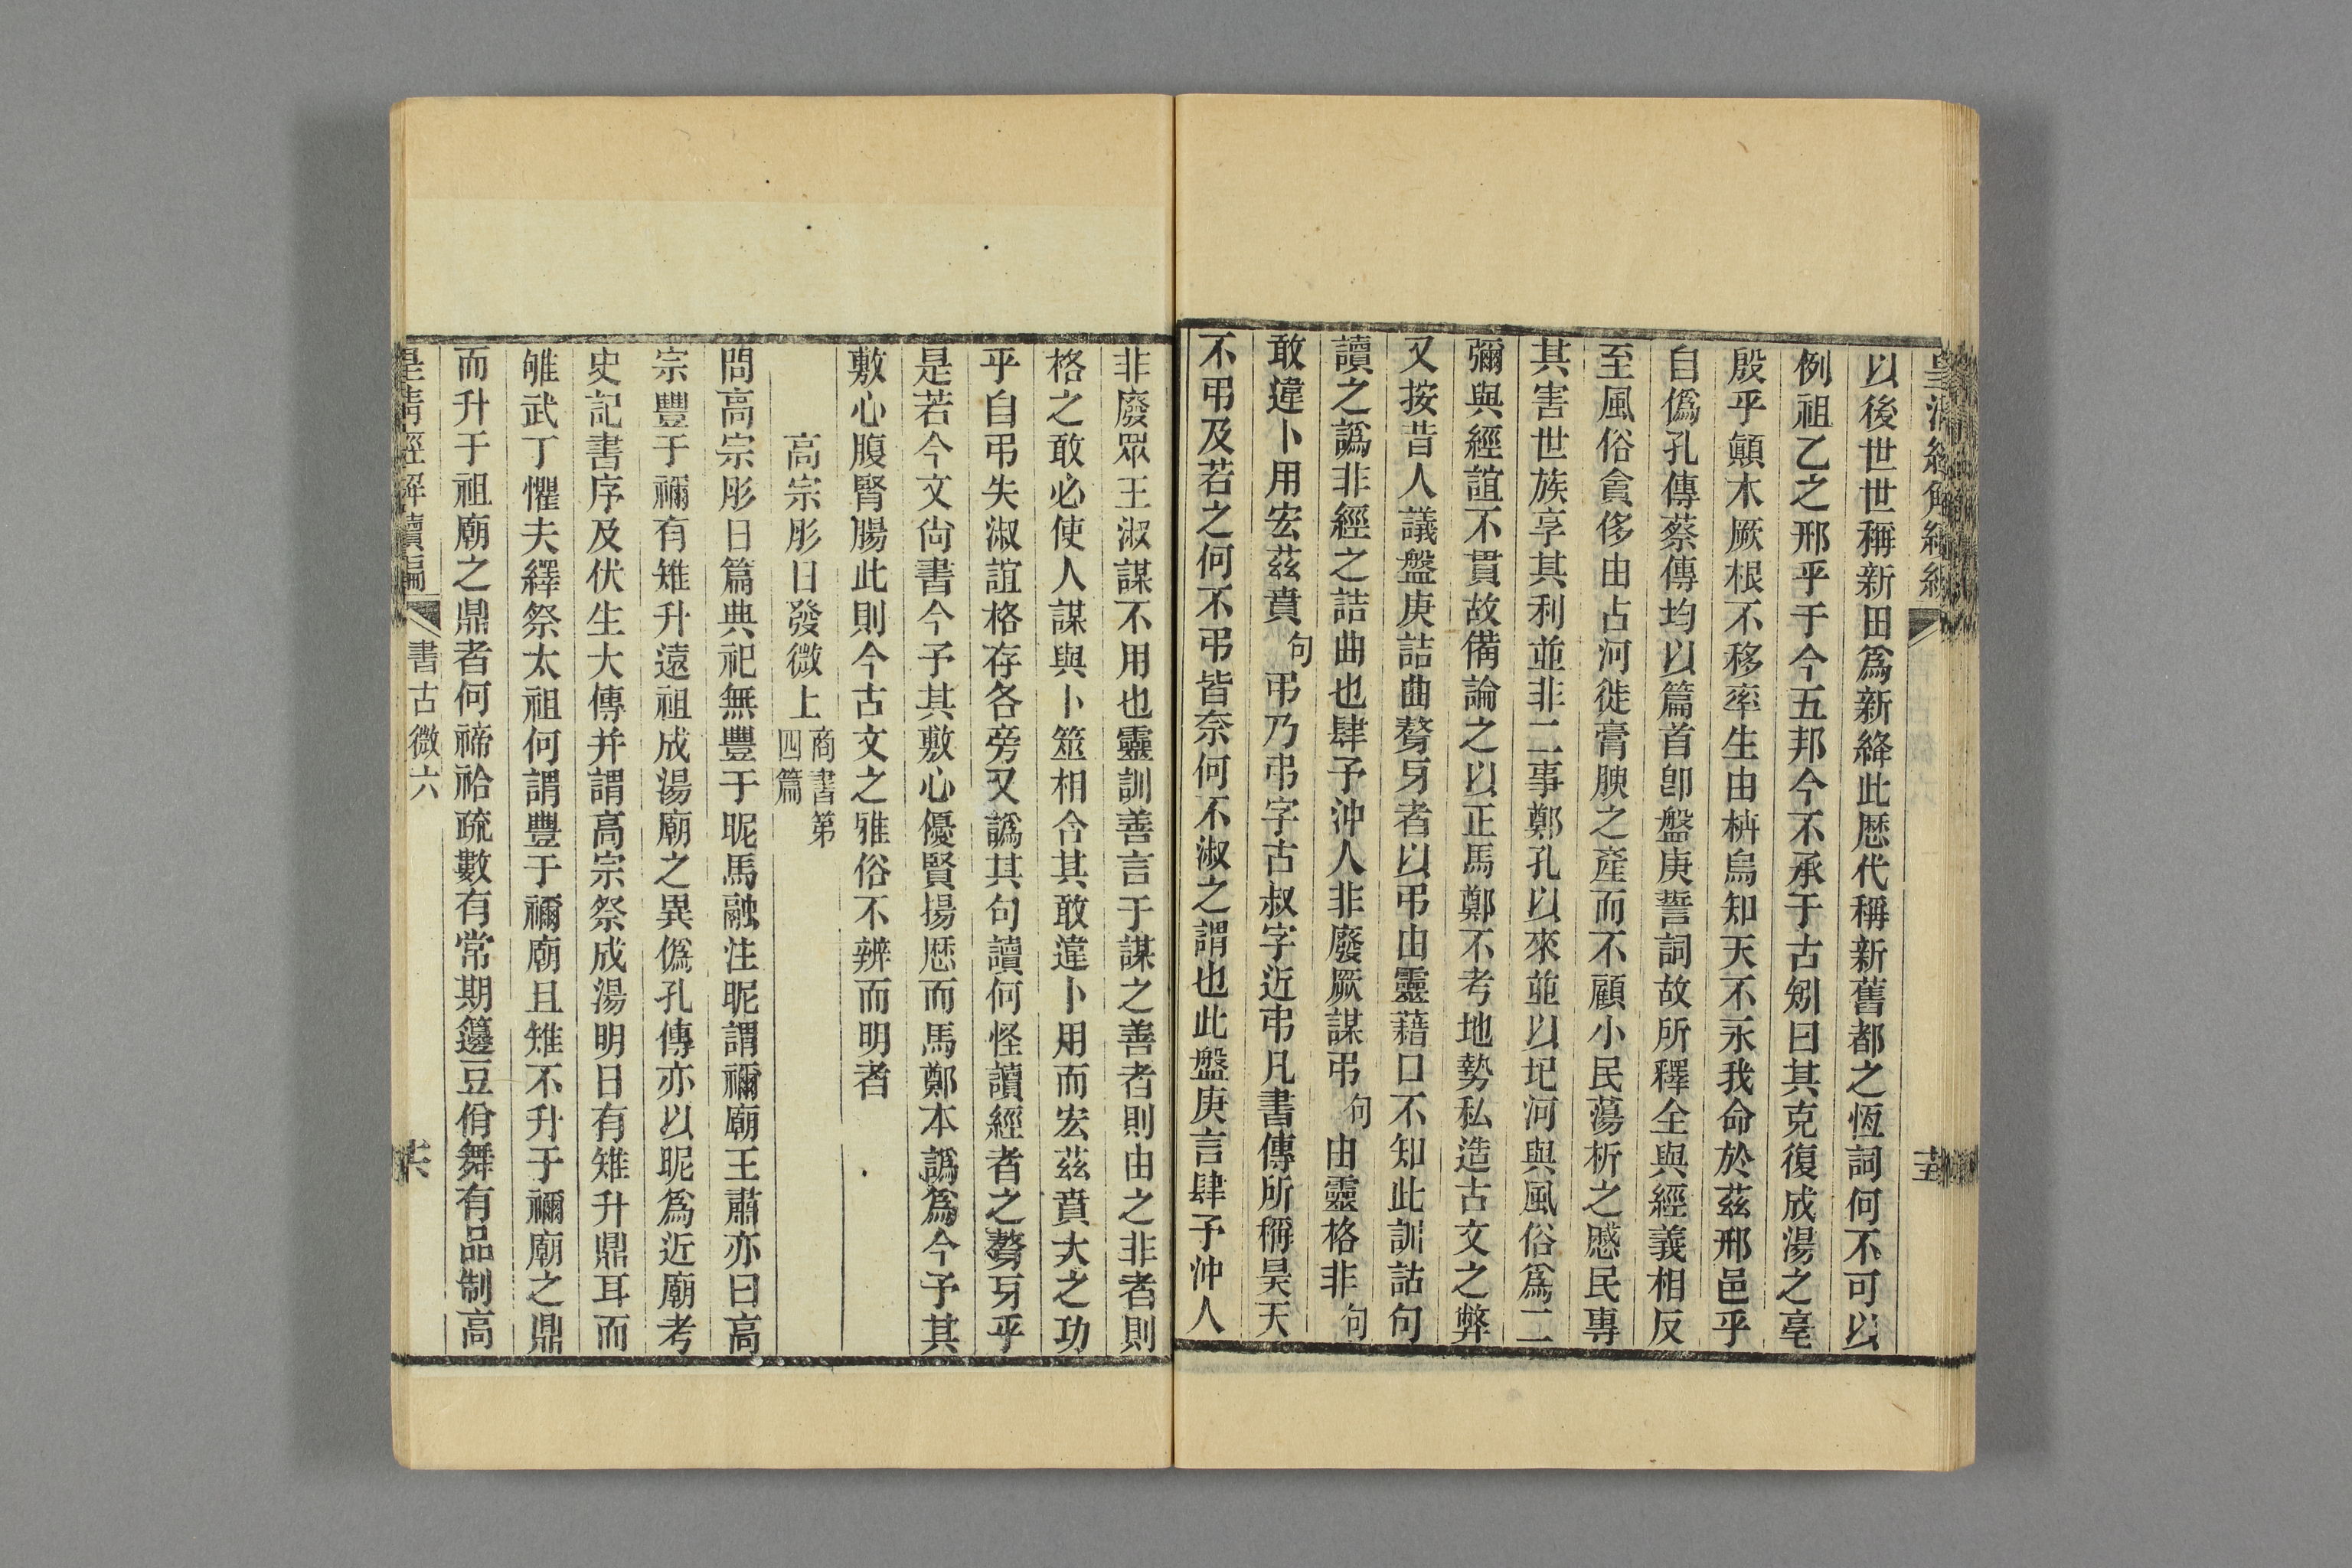 以後世世稱新田爲新絳此歴代稱新舊都之恆詞何不可以
例祖乙之邢乎于今五邦今不承于古矧曰其克復成湯之亳
殷乎顛木厥根不移率生由枿烏知天不永我命於茲邢邑乎
自僞孔傳蔡傳均以篇首卽盤庚誓詞故所釋全與經義相反
至風俗貪侈由占河徙膏腴之產而不顧小民蕩析之慼民專
其害世族享其利並非二事鄭孔以來並以圯河與風俗爲二
彌與經誼不貫故備論之以正馬鄭不考地勢私造古文之弊
又按昔人議盤庚詰曲聱牙者以弔由靈藉口不知此訓詁句
讀之譌非經之詰曲也肆予沖人非廢厥謀弔句由靈格非句
敢違卜用宏茲賁句弔乃弔字古叔字近弔凡書傳所稱昊天
不弔及若之何不弔皆奈何不淑之謂也此盤庚言肆予沖人
非廢眾王淑謀不用也靈訓善言于謀之善者則由之非者則
格之敢必使人謀與卜筮相合其敢違卜用而宏茲賁大之功
乎自弔失淑誼格存各旁又譌其句讀何怪讀經者之聱牙乎
是若今文尙書今予其敷心優賢揚歴而馬鄭本譌爲今予其
敷心腹腎腸此則今古文之雅俗不辨而明者
高宗肜日發微上商書第
四篇
問高宗肜日篇典祀無豐于昵馬融注昵謂禰廟王肅亦曰高
宗豐于禰有雉升遠祖成湯廟之異僞孔傳亦以昵爲近廟考
史記書序及伏生大傳并謂高宗祭成湯明日有雉升鼎耳而
雊武丁懼夫繹祭太祖何謂豐于禰廟且雉不升于禰廟之鼎
而升于祖廟之鼎者何禘祫疏數有常期籩豆佾舞有品制高
皇清經解續編
書古微六